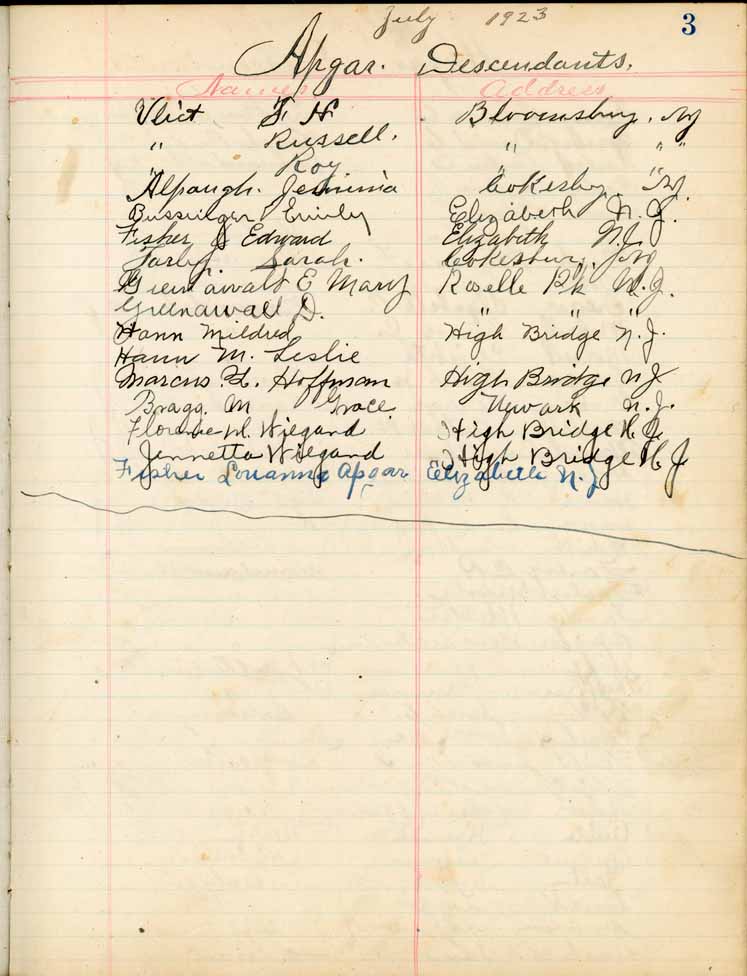 July 1923
3
Apgar. Descendants.
Names Address
Vliet F. H. Bloomsbury, NJ
" Russell. " " "
" Roy
Alpaugh. Jemima Cokesbury "NJ
Bussinger Emily Elizabeth N.J.
Fisher Edward Elizabeth N.J.
Farley. Sarah. Cokesbury, NJ
Greenawalt E Mary Roselle Pk N.J.
Greenawalt D. " " "
Hann Mildred High Bridge N.J.
Hann M. Leslie
Marcus Hoffman High Bridge NJ
Bragg. M Grace. Newark N.J.
Florence M. Wiegand High Bridge N J
Jennetta Wiegand High Bridge N J
Fisher Louanna Apgar Elizabeth N.J